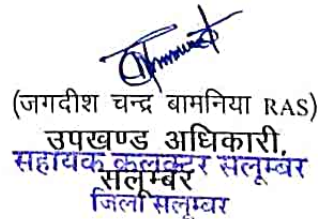 (जगदीश चन्द्र बामनिया RAS)
उपखण्ड अधिकारी,
सहायक कलक्टर सलूम्बर
सलूम्बर
जिला सलूम्बर